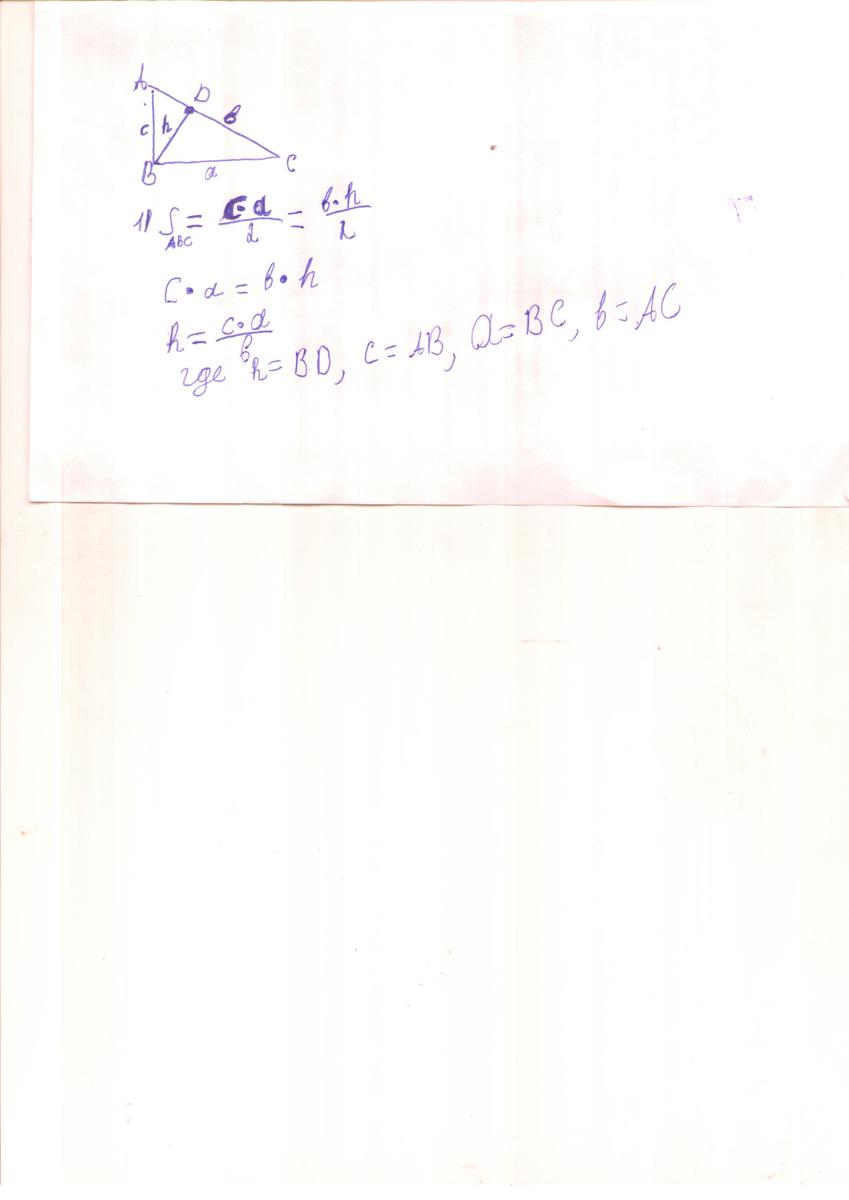 A
D
c
h
в
B
a
C
1) S ABC = c·a/2 = в·h/2
C·a = в·h
h = c·a/в
где h = BD, c = AB, a = BC, в = AC